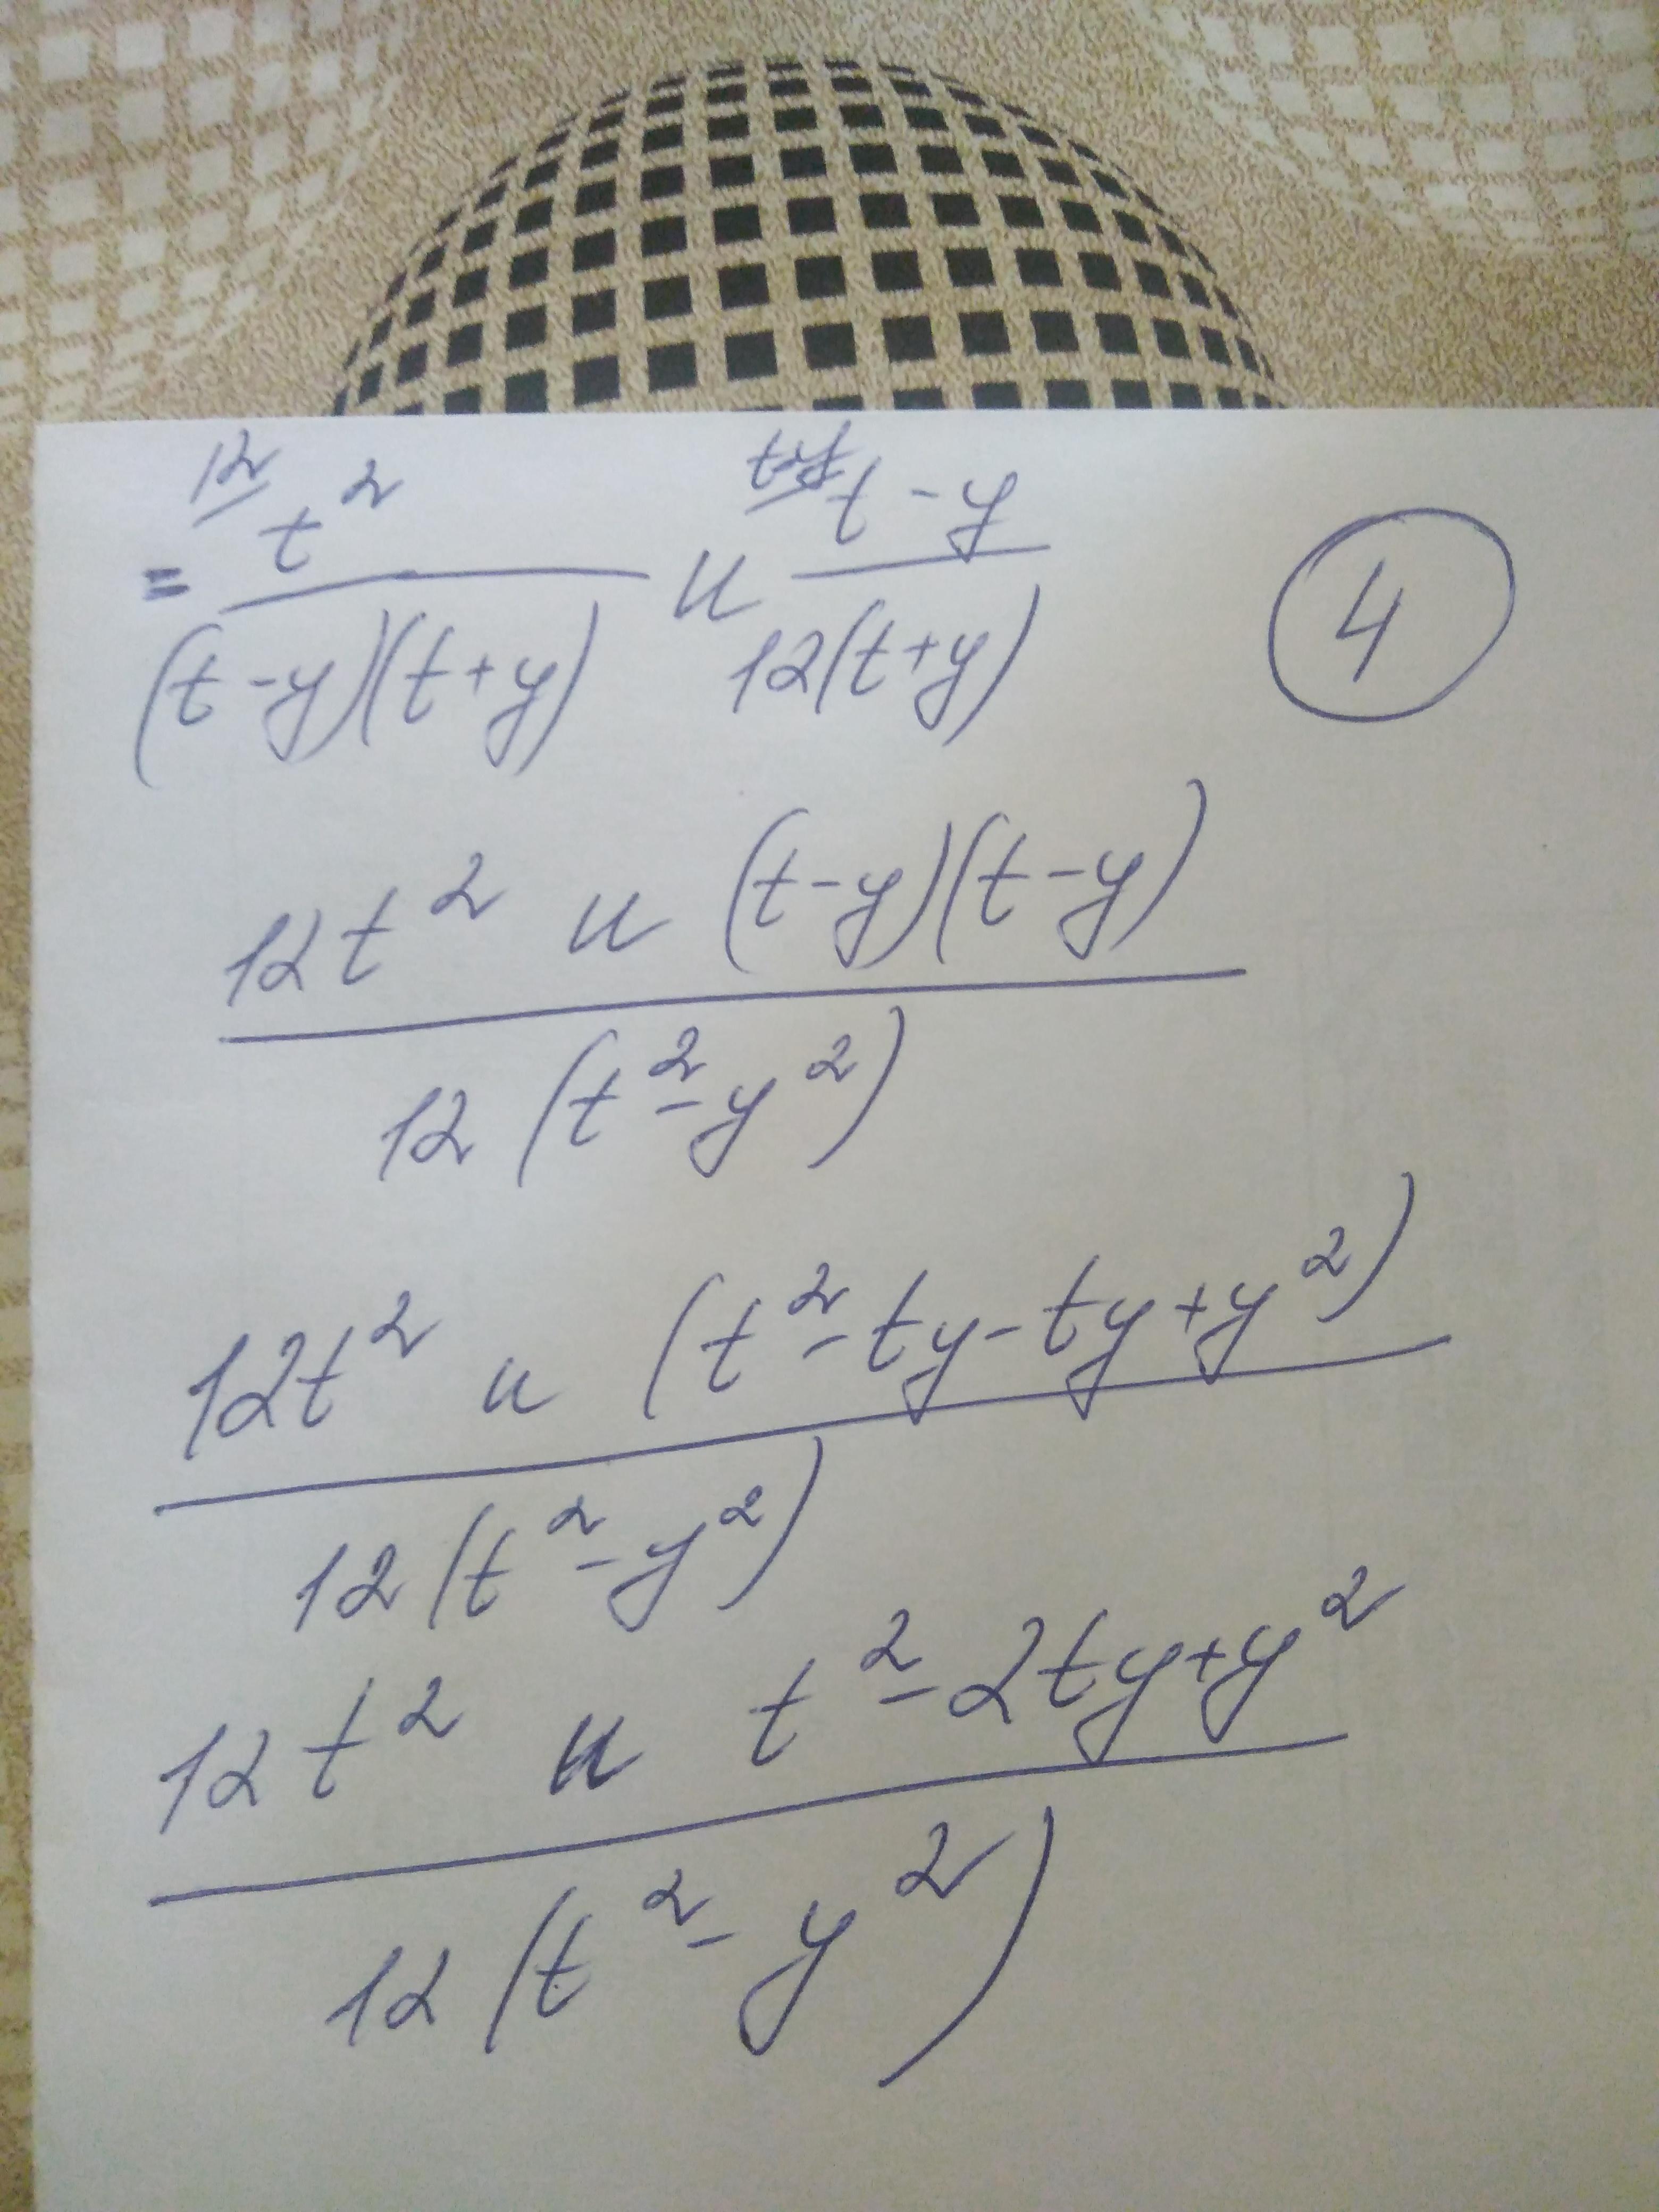 12 t² t-y t - y
= ——— и ———
(t-y)(t+y) 12(t+y)
4
12t² и (t-y)(t-y)
12(t²-y²)
12t² и (t²-ty-ty+y²)
12(t²-y²)
12t² и t²-2ty+y²
12(t²-y²)